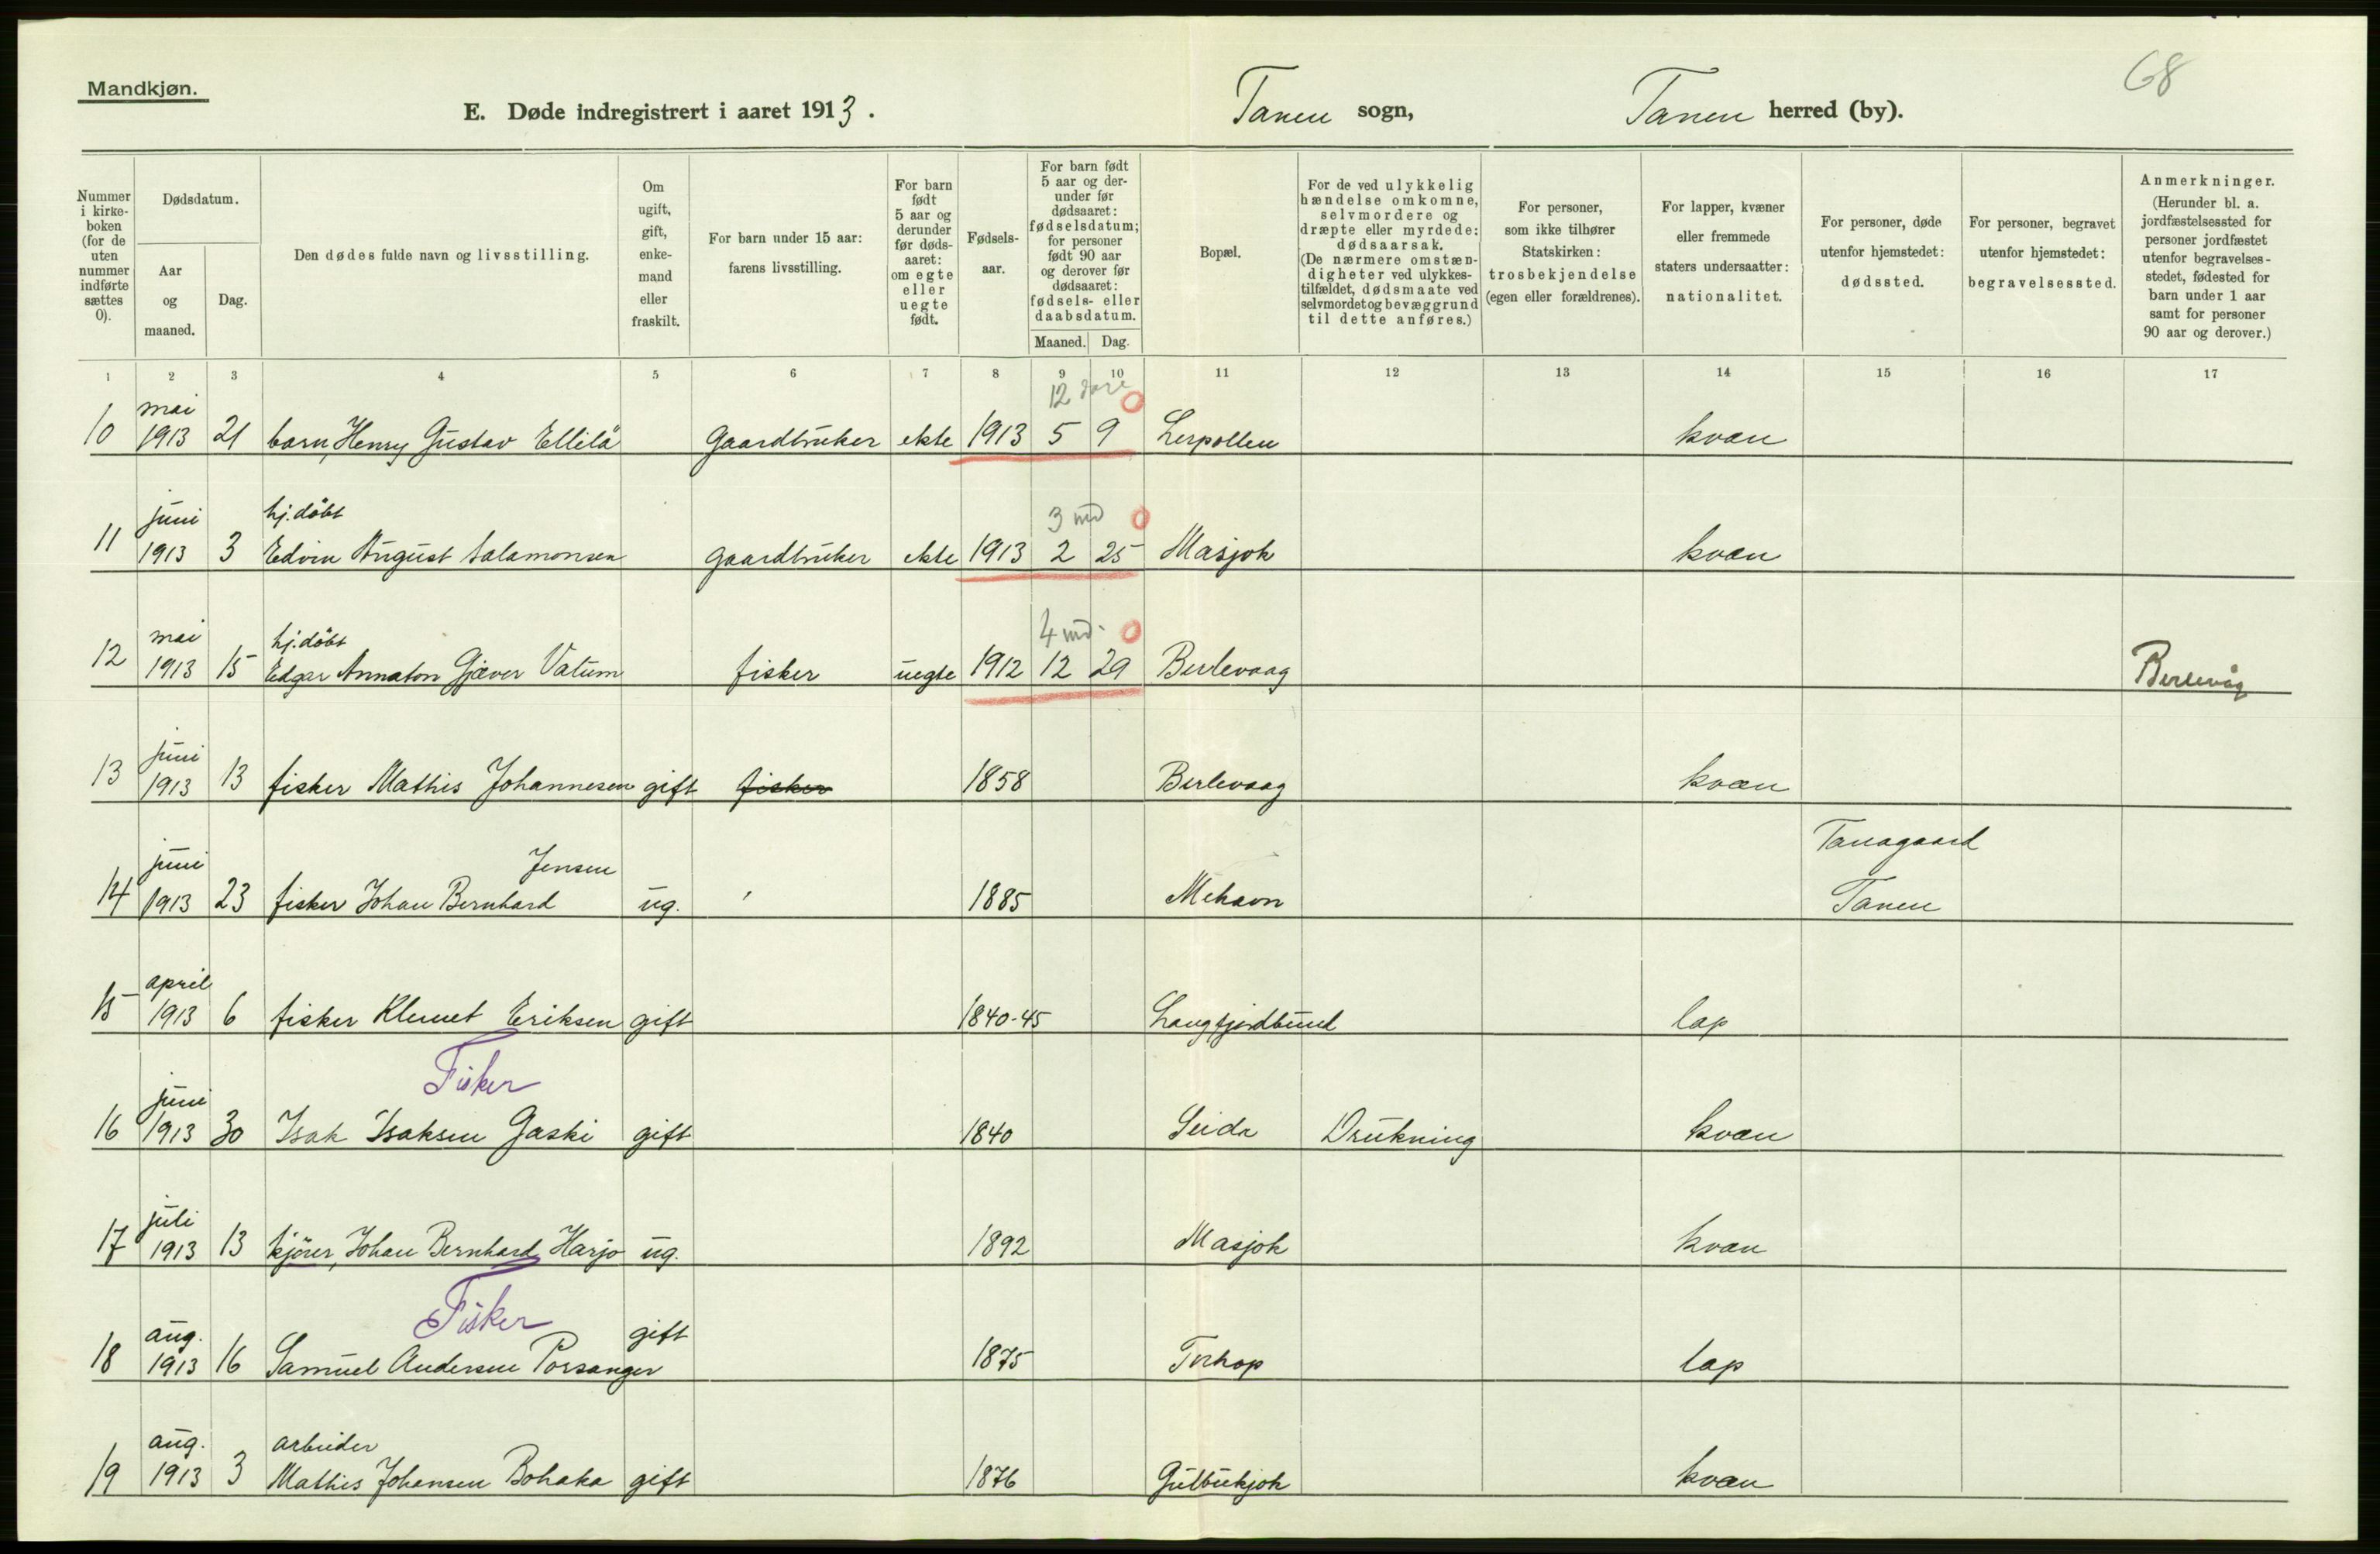 68
Mandkjøn.
E. Døde indregistrert i aaret 1913. Tanen sogn, Tanen herred (by).
Nummer i kirke-boken (for de uten nummer indførte sættes 0).
Dødsdatum.
Aar og maaned.
Dag.
Den dødes fulde navn og livsstilling.
Om ugift, gift, enke-mand eller fraskilt.
For barn under 15 aar: farens livsstilling.
For barn født 5 aar og derunder før døds-aaret: om egte eller uegte født.
Fødsels-aar.
For barn født 5 aar og der-under før dødsaaret: fødselsdatum; for personer født 90 aar og derover før dødsaaret: fødsels- eller daabsdatum.
Maaned. Dag.
Bopæl.
For de ved ulykkelig hændelse omkomne, selvmordere og dræpte eller myrdede: dødsaarsak. (De nærmere omstæn-digheter ved ulykkes-tilfældet, dødsmaate ved selvmordet og bevæggrund til dette anføres.)
For personer, som ikke tilhører Statskirken: trosbekjendelse (egen eller forældrenes).
For lapper, kvæner eller fremmede staters undersaatter: nationalitet.
For personer, døde utenfor hjemstedet: dødssted.
For personer, begravet utenfor hjemstedet: begravelsessted.
Anmerkninger. (Herunder bl. a. jordfæstelsessted for personer jordfæstet utenfor begravelses-stedet, fødested for barn under 1 aar samt for personer 90 aar og derover.)
1 2 3 4 5 6 7 8 9 10 11 12 13 14 15 16 17
mai 12
10 1913 21 barn, Henry Gustav Ellilä Gaardbruker ekte 1913 5 9 Lerpollen kvæn
juni hj. döbt 3 md
11 1913 3 Edvin August Salamonsen gaardbruker ekte 1913 2 25 Masjok kvæn
mai hj. döbt 4 md.
12 1913 15 Edgar Annaton Gjæver Vatum fisker uegte 1912 12 29 Berlevaag Berlevåg
juni
13 1913 13 fisker Mathis Johannesen gift fisker 1858 Berlevaag kvæn
juni Jensen Tanagaard
14 1913 23 fisker Johan Bernhard ug. 1885 Mehavn Tanen
april
15 1913 6 fisker Klemet Eriksen gift 1840-45 Langfjordbund lap
juni Fisker
16 1913 30 Isak Isaksen Gaski gift 1840 Seida Drukning kvæn
juli
17 1913 13 kjörer, Johan Bernhard Harjo ug. 1892 Masjok kvæn
aug. Fisker gift
18 1913 16 Samuel Andersen Porsanger 1875 Torhop lap
aug. arbeider
19 1913 3 Mathis Johansen Bohaka gift 1876 Gulbukjok kvæn